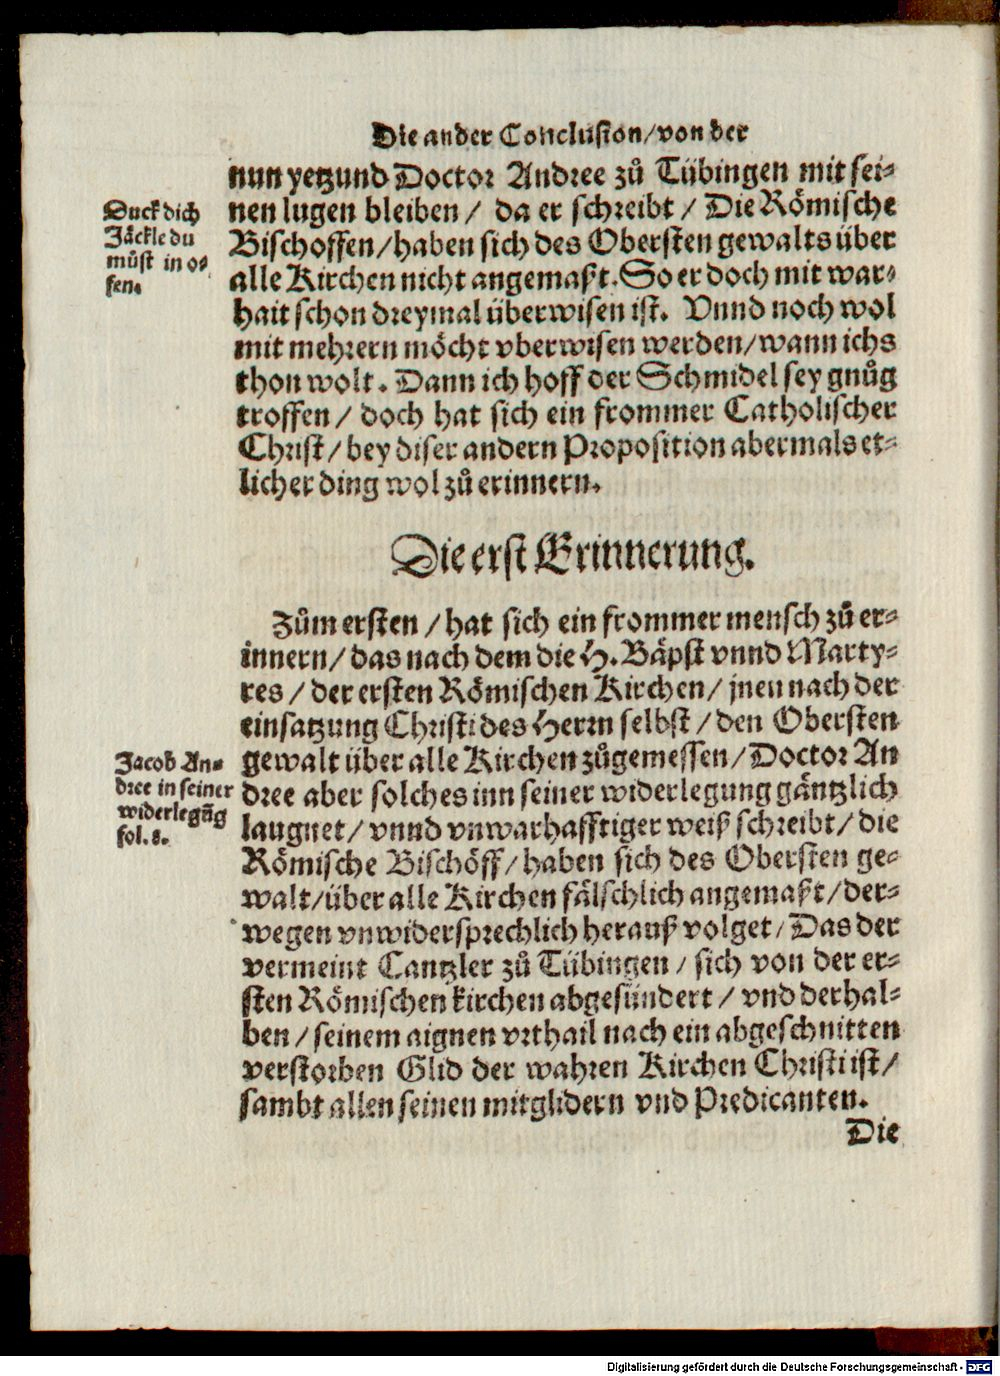 Die ander Conclusion/von der
nun yetzund Doctor Andree zů Tübingen mit sei⸗
nen lugen bleiben / da er schreibt / Die Römische
Bischoffen/haben sich des Obersten gewalts über
alle Kirchen nicht angemaßt. So er doch mit war⸗
hait schon dreymal überwisen ist. Vnnd noch wol
mit mehrern möcht vberwisen werden/wann ichs
thon wolt. Dann ich hoff der Schmidel sey gnůg
troffen / doch hat sich ein frommer Catholischer
Christ / bey diser andern Proposition abermals et⸗
licher ding wol zů erinnern.
Duck dich
Jäckle du
můst in o⸗
fen.
Die erst Erinnerung.
Zům ersten / hat sich ein frommer mensch zů er⸗
innern/ das nach dem die H. Bäpst vnnd Marty⸗
res / der ersten Römischen Kirchen/ jnen nach der
einsatzung Christi des Herrn selbst / den Obersten
gewalt über alle Kirchen zůgemessen/ Doctor An
dree aber solches inn seiner widerlegung gäntzlich
laugnet / vnnd vnwarhafftiger weiß schreibt/ die
Römische Bischöff/ haben sich des Obersten ge⸗
walt/über alle Kirchen fälschlich angemaßt / der⸗
wegen vnwidersprechlich herauß volget/ Das der
vermeint Cantzler zů Tübingen / sich von der er⸗
sten Römischen kirchen abgesündert / vnd derhal⸗
ben / seinem aignen vrthail nach ein abgeschnitten
verstorben Glid der wahren Kirchen Christi ist /
sambt allen seinen mitglidern vnd Predicanten.
Jacob An⸗
dree in seiner
widerlegūg
fol. 8.
Die
Digitalisierung gefördert durch die Deutsche Forschungsgemeinschaft - DFG